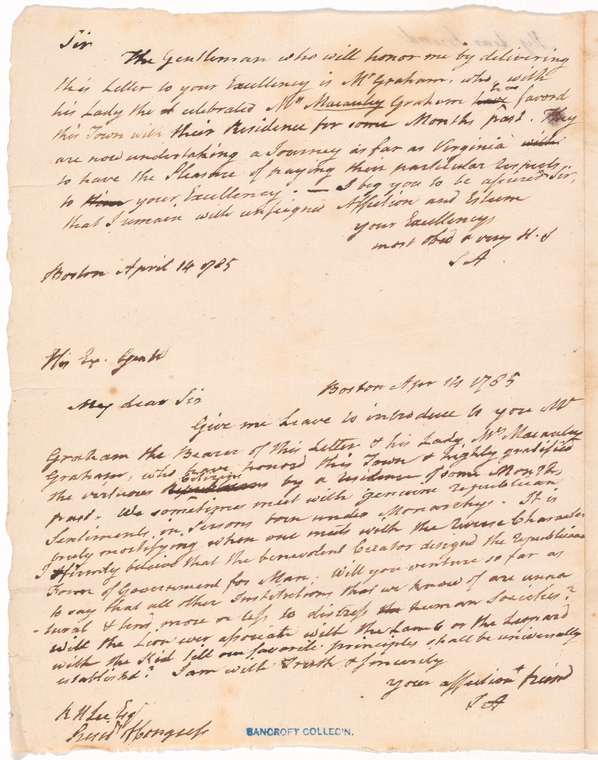 Sir
The Gentleman who will honor me by delivering
this Letter to your Excellency is Mr Graham, who with
his Lady the celebrated Mrs Macauley Graham have favord
this Town with their Residence for some Months past. They
are now undertaking a Journey as far as Virginia with
to have the Pleasure of paying their particular respects
to him your Excellency. — I beg you to be assured Sir,
that I remain with unfeigned Affection and Esteem
your Excellencys
most Obed & very H. S
S A
Boston April 14 1785
His Ex. Genl W
Boston Apr 14 1785
My dear Sir
Give me Leave to introduce to you Mr
Graham the Bearer of this Letter & his Lady, Mrs Macauley
Graham, who have honord this Town & highly gratified
the virtuous Citizens by a residence of some Months
past. We sometimes meet with genuine republican
Sentiments in Persons born under Monarchy. It is
truly mortifying when one meets with the reverse Character
I firmly believe that the benevolent Creator designd the republican
Form of Government for Man. Will you venture so far as
to say that all other Institutions that we know of are unna
-tural & tend more or less to distress the human Societies?
will the Lion ever associate with the Lamb or the Leopard
with the Kid till our favorite principles shall be universally
establishd? I am with Truth & Sincerity
your affectione friend
S A
R H Lee Esqr
Presdt of Congress
BANCROFT COLLEC'N.